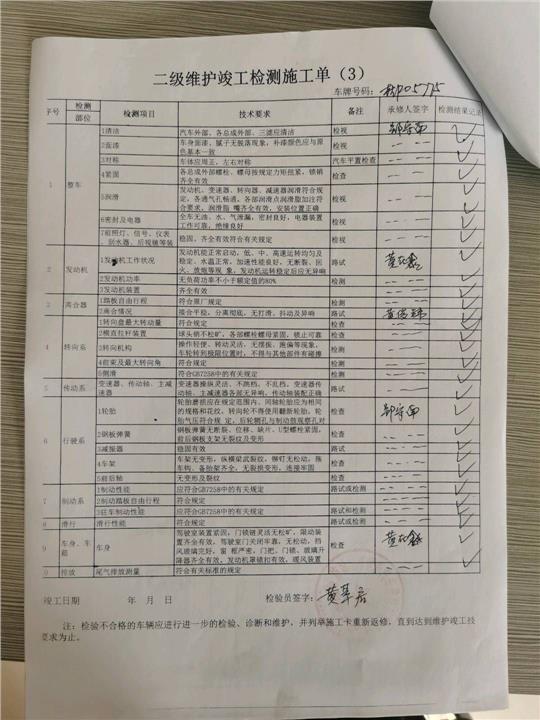 二级维护竣工检测施工单（3）
车牌号码：
序号 检测部位 检测项目 技术要求 备注 承修人签字 检测结果记录
1 整车 1清洁 汽车外部、各总成外部、三滤应清洁 检视
2面漆 车身面漆、腻子无脱落现象，补漆颜色应与原色基本一致 检视
3对称 车体应周正，左右对称 汽车平置检查
4紧固 各总成外部螺栓、螺母按规定力矩扭紧，锁销齐全有效 检查
5润滑 发动机、变速器、转向器、减速器润滑符合规定，各通气孔畅通，各部润滑点润滑脂加注符合要求，润滑脂嘴齐全有效，安装位置正确 检视
6密封及电器 全车无油、水、气泄漏，密封良好，电器装置工作可靠，绝缘良好 检视
7前照灯、信号、仪表、刮水器、后视镜等装 稳固、齐全有效符合有关规定 检视
2 发动机 1发动机工作状况 发动机能正常启动，低、中、高速运转均匀及稳定、水温正常，加速性能良好，无断裂、回火、放炮等现 象，发动机运转稳定后应无异响 路试
2发动机功率 无负荷功率不小于额定值的80% 检测
3发动机装置 齐全有效
3 离合器 1踏板自由行程 符合原厂规定 检测
2离合情况 接合平稳，分离彻底、无打滑，抖动及异响 路试
4 转向系 1转向盘最大转动量 符合规定 检查
2横直拉杆装置 球头销不松旷，各部螺栓螺母紧固，锁止可靠 检查
3转向机构 操作轻便、转动灵活、无摆振、跑偏等现象，车轮转到极限位置时，不得与其他部件有碰擦 检测
4前束及最大转向角 符合规定 检测
5侧滑 符合GB7258中的有关规定 检测
5 传动系 变速器、传动轴、主减速器 变速器操纵灵活、不跳档、不乱档，变速器传动轴、主减速器各部无异响，传动轴装配正确 路试
6 行驶系 1轮胎 轮胎磨损应在规定范围内、同轴轮胎应为相同的规格和花纹，转向轮不得使用翻新轮胎，轮胎气压符合规 定，后轮辋孔与制动鼓观察孔对 检查
2钢板弹簧 钢板弹簧无断裂、位移、缺片、U型螺栓紧固，前后钢板支架无裂纹及变形 检查
3减振器 稳固有效 路试
4车架 车架无变形，纵横梁武裂纹，铆钉无松动，拖车钩、备胎架齐全，无裂损变形，连接牢固 检查
5前后轴 无变形及裂纹 检查
7 制动系 1制动性能 应符合GB7258中的有关规定 路试或检测
2制动踏板自由行程 符合规定 检测
3驻车制动性能 应符合GB7258中的有关规定 路试和检测
8 滑行 滑行性能 符合规定 路试或检测
9 车身、车 车身 驾驶室装置紧固，门锁链灵活无松旷，限动装置齐全有效，驾驶室门关闭牢靠，无松动，挡风玻璃完好，窗 框严密，门把、门锁、玻璃升降器齐全有效，发动机罩锁扣有效，暖风装置 检查
排放 尾气排放测量 符合有关标准的规定
竣工日期 年 月 日 检验员签字：
注：检验不合格的车辆应进行进一步的检验、诊断和维护，并列举施工卡重新返修，直到达到维护竣工技
要求为止。